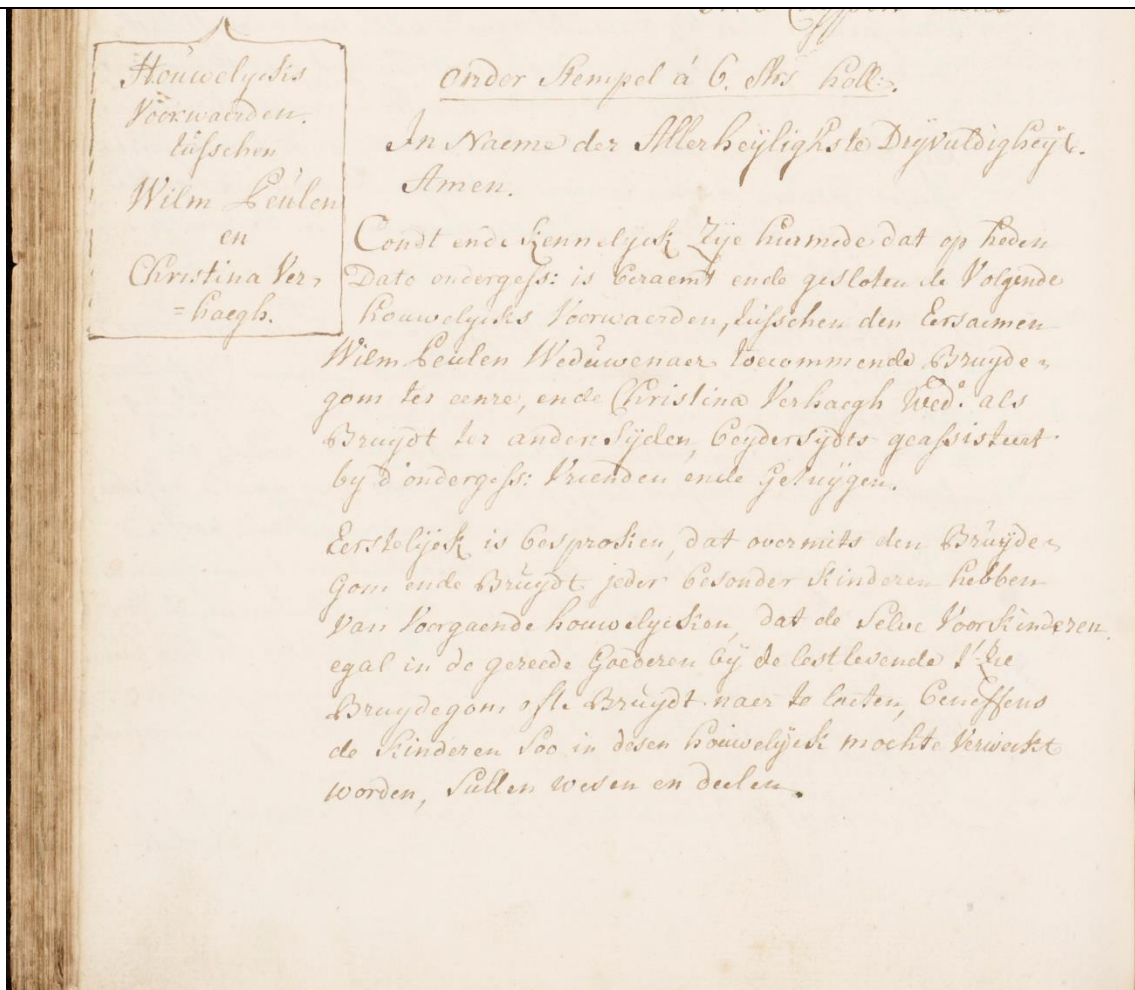 Houwelyckis
Voorwaerden.
tusschen
Wilm Peulen
en
Christina Ver,
=haegh.
onder Stempel á 6. Strs holl:
In Naeme der Allerheylighste Dryvuldigheyt.
Amen.
Condt ende Kennelyck Zye hiermede dat op heden
Dato ondergess: is beraemt ende gesloten de Volgende
houwelycks Voorwaerden, tusschen den Eersaemen
Wilm Peulen Weduwenaer toecommende Bruyde=
gom ter eenre, ende Christina Verhaegh Wed:e als
Bruydt ter andere Syden, beydersydts geassisteert
by d'ondergess: Vrienden ende Getuygen.
Eerstelyck is besproken, dat overmits den Bruyde=
gom ende Bruydt jeder besonder Kinderen hebben
Van Voorgaende houwelycken, dat de Selve Voorkinderen
egal in de gereede Goederen by de lestlevende
Bruydegom ofte Bruydt naer te laeten, beneffens
de Kinderen Soo in desen houwelyck mochte Verweckt
worden, Sullen wesen en deelen.